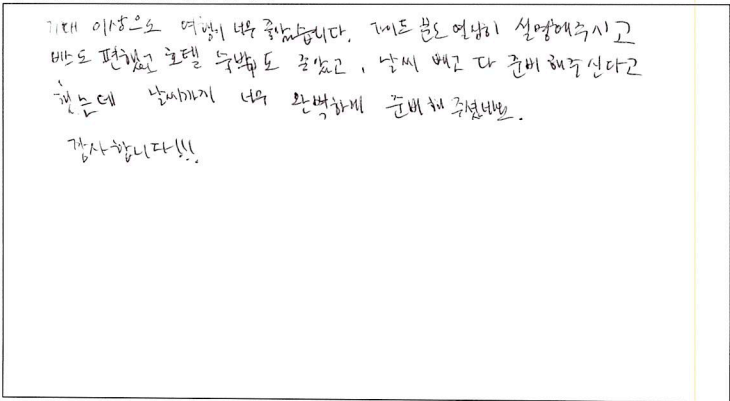 기대 이상으로 여행이 너무 좋았습니다. 가이드 분도 열심히 설명해주시고
버스도 편했고 호텔 숙박도 좋았고, 날씨 빼고 다 준비해주신다고
했는데 날씨까지 너무 완벽하게 준비해 주셨네요.
감사합니다!!!